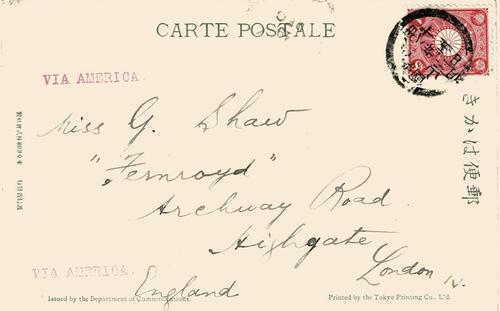 CARTE POSTALE
VIA AMERICA.
きかは便郵
Miss G. Shaw
"Fernroyd"
Archway Road
Highgate
London N.
England
VIA AMERICA.
Issued by the Department of Communications.
Printed by the Tokyo Printing Co., L'd.